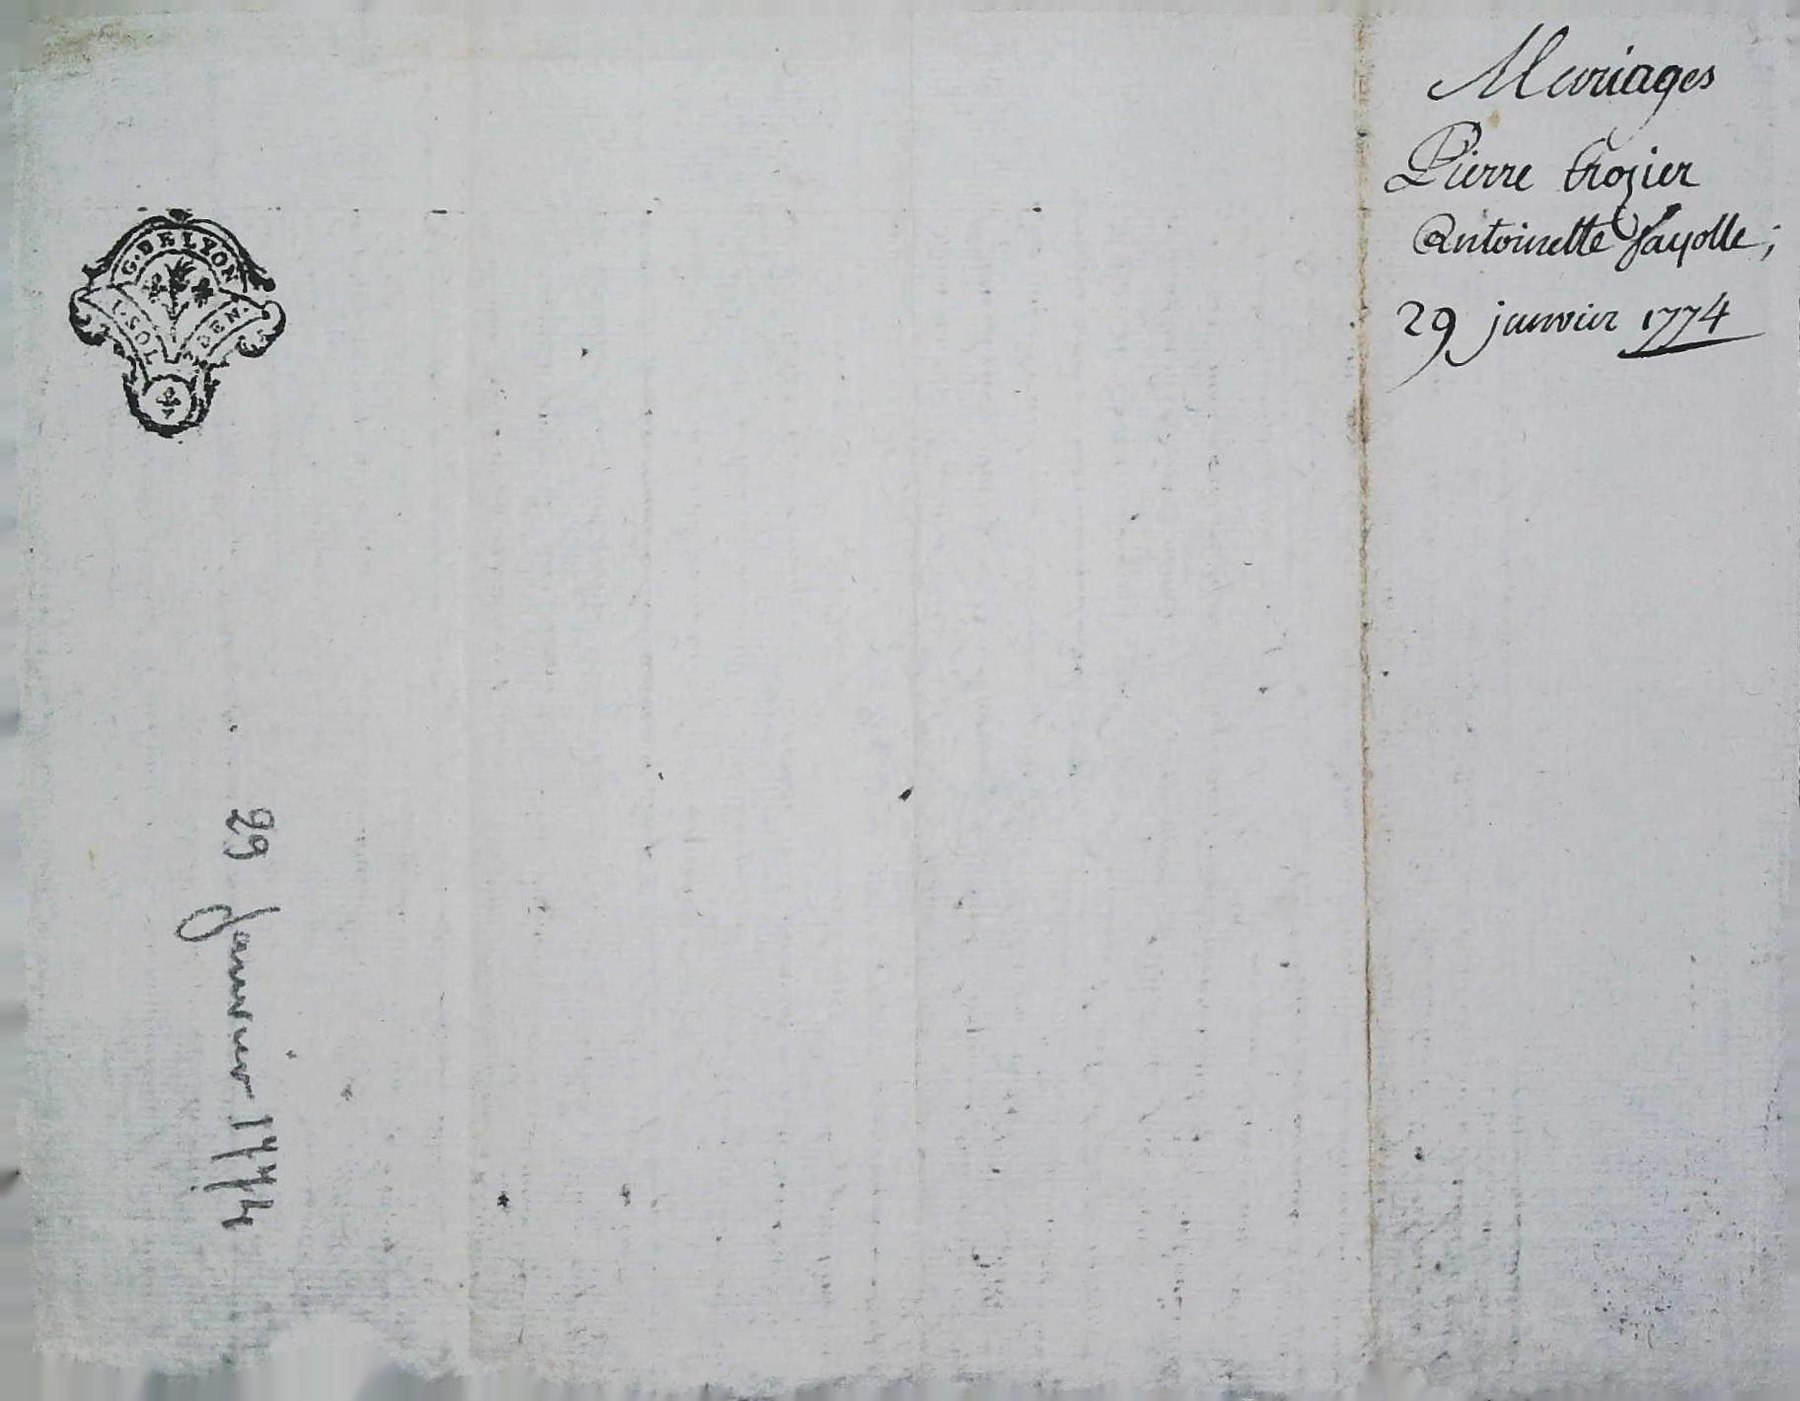 Mariages
Pierre trozier
Antoinette fayolle;
29 janvier 1774
G. DE LYON
1. SOL DEN.
29 Janvier 1774